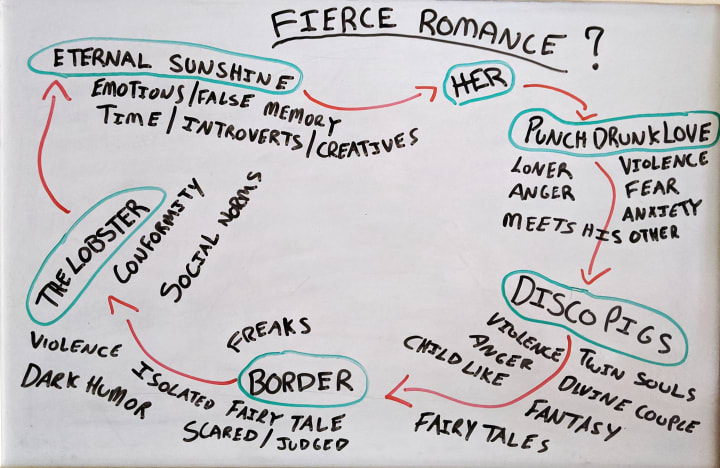 FIERCE ROMANCE ?
ETERNAL SUNSHINE
EMOTIONS/FALSE MEMORY
TIME/INTROVERTS/CREATIVES
HER
PUNCH DRUNK LOVE
LONER
ANGER
MEETS HIS OTHER
VIOLENCE
FEAR
ANXIETY
DISCO PIGS
VIOLENCE
ANGER
CHILD LIKE
TWIN SOULS
DIVINE COUPLE
FANTASY
FAIRY TALES
BORDER
FREAKS
ISOLATED FAIRY TALE
SCARED/JUDGED
THE LOBSTER
CONFORMITY
SOCIAL NORMS
VIOLENCE
DARK HUMOR